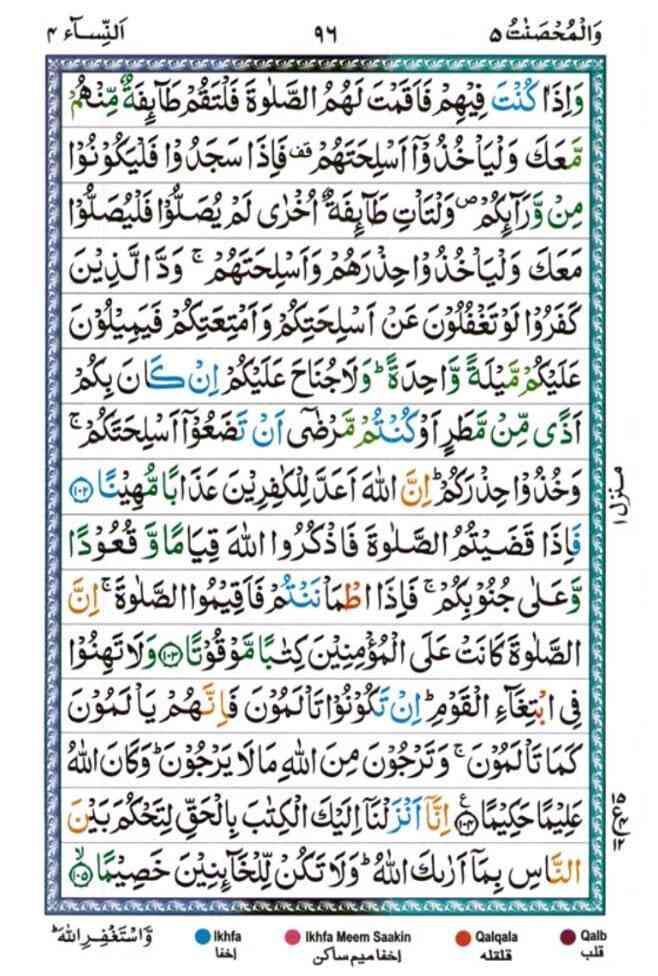 وَالْمُحْصَنٰتُ ۵ ۹۶ اَلنِّسَآء ۴
وَاِذَا كُنْتَ فِيْهِمْ فَاَقَمْتَ لَهُمُ الصَّلٰوةَ فَلْتَقُمْ طَآئِفَةٌ مِّنْهُمْ
مَّعَكَ وَلْيَاْخُذُوْۤا اَسْلِحَتَهُمْ ۫ فَاِذَا سَجَدُوْا فَلْيَكُوْنُوْا
مِنْ وَّرَآئِكُمْ ۪ وَلْتَاْتِ طَآئِفَةٌ اُخْرٰى لَمْ يُصَلُّوْا فَلْيُصَلُّوْا
مَعَكَ وَلْيَاْخُذُوْا حِذْرَهُمْ وَاَسْلِحَتَهُمْ ۚ وَدَّ الَّذِيْنَ
كَفَرُوْا لَوْ تَغْفُلُوْنَ عَنْ اَسْلِحَتِكُمْ وَاَمْتِعَتِكُمْ فَيَمِيْلُوْنَ
عَلَيْكُمْ مَّيْلَةً وَّاحِدَةً ؕ وَلَا جُنَاحَ عَلَيْكُمْ اِنْ كَانَ بِكُمْ
اَذًى مِّنْ مَّطَرٍ اَوْ كُنْتُمْ مَّرْضٰۤى اَنْ تَضَعُوْۤا اَسْلِحَتَكُمْ ۚ
وَخُذُوْا حِذْرَكُمْ ؕ اِنَّ اللّٰهَ اَعَدَّ لِلْكٰفِرِيْنَ عَذَابًا مُّهِيْنًا ۱۰۲
فَاِذَا قَضَيْتُمُ الصَّلٰوةَ فَاذْكُرُوا اللّٰهَ قِيَامًا وَّ قُعُوْدًا
وَّعَلٰى جُنُوْبِكُمْ ۚ فَاِذَا اطْمَاْنَنْتُمْ فَاَقِيْمُوا الصَّلٰوةَ ۚ اِنَّ
الصَّلٰوةَ كَانَتْ عَلَى الْمُؤْمِنِيْنَ كِتٰبًا مَّوْقُوْتًا ۱۰۳ وَلَا تَهِنُوْا
فِى ابْتِغَآءِ الْقَوْمِ ؕ اِنْ تَكُوْنُوْا تَاْلَمُوْنَ فَاِنَّهُمْ يَاْلَمُوْنَ
كَمَا تَاْلَمُوْنَ ۚ وَتَرْجُوْنَ مِنَ اللّٰهِ مَا لَا يَرْجُوْنَ ؕ وَكَانَ اللّٰهُ
عَلِيْمًا حَكِيْمًا ۱۰۴ اِنَّاۤ اَنْزَلْنَاۤ اِلَيْكَ الْكِتٰبَ بِالْحَقِّ لِتَحْكُمَ بَيْنَ
النَّاسِ بِمَاۤ اَرٰىكَ اللّٰهُ ؕ وَلَا تَكُنْ لِّلْخَآئِنِيْنَ خَصِيْمًا ۱۰۵
منزل ۱
وَّاسْتَغْفِرِ اللّٰهَ ؕ
Ikhfa Ikhfa Meem Saakin Qalqala Qalb
اخفا اخفا میم ساکن قلقله قلب